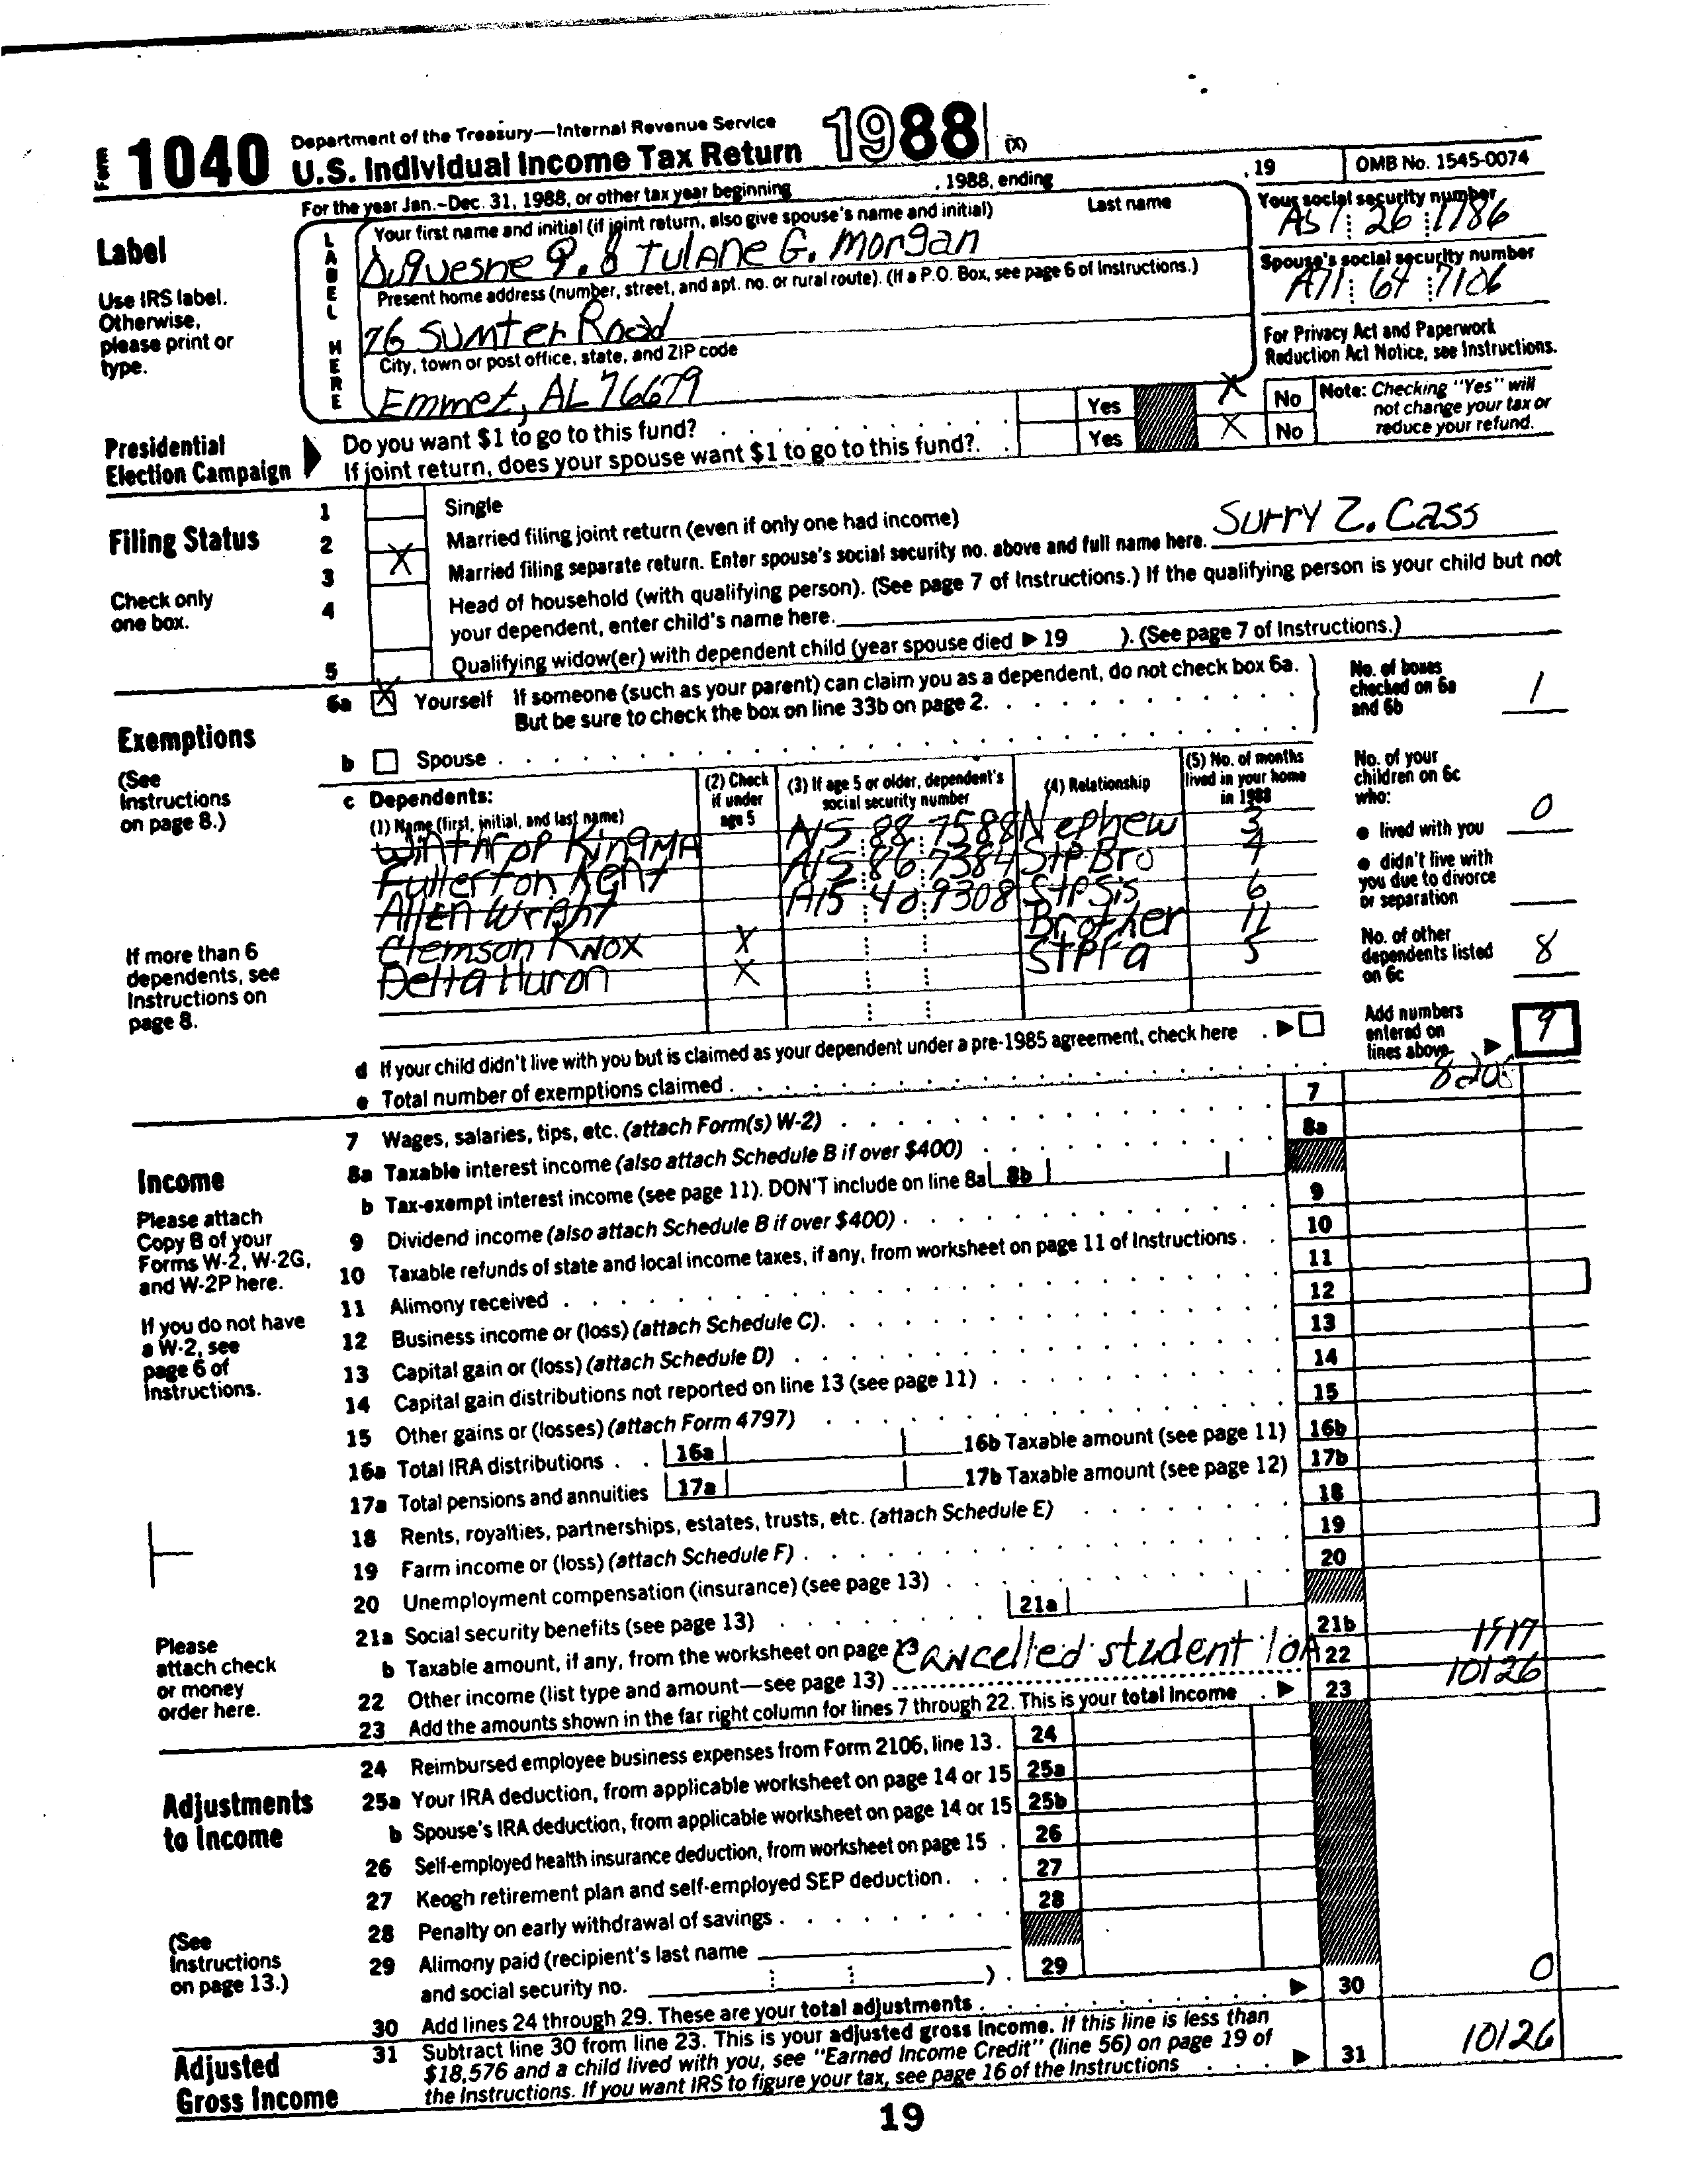 Form 1040 Department of the Treasury—Internal Revenue Service
U.S. Individual Income Tax Return 1988 (X)
For the year Jan.-Dec. 31, 1988, or other tax year beginning , 1988, ending , 19 OMB No. 1545-0074
Label
Use IRS label.
Otherwise,
please print or
type.
LABEL HERE
Your first name and initial (if joint return, also give spouse's name and initial) Last name
& Tulane G. Morgan
Your social security number
26
Present home address (number, street, and apt. no. or rural route). (If a P.O. Box, see page 6 of Instructions.)
76 Sumter Road
Spouse's social security number
A71 64 7106
City, town or post office, state, and ZIP code
Emmet, AL 76679
For Privacy Act and Paperwork
Reduction Act Notice, see Instructions.
Presidential
Election Campaign
Do you want $1 to go to this fund? Yes X No
If joint return, does your spouse want $1 to go to this fund? Yes X No
Note: Checking "Yes" will
not change your tax or
reduce your refund.
Filing Status
Check only
one box.
1 Single
2 Married filing joint return (even if only one had income)
3 X Married filing separate return. Enter spouse's social security no. above and full name here. Surry Z. Cass
4 Head of household (with qualifying person). (See page 7 of Instructions.) If the qualifying person is your child but not
your dependent, enter child's name here.
5 Qualifying widow(er) with dependent child (year spouse died ▶ 19 ). (See page 7 of Instructions.)
Exemptions
(See
Instructions
on page 8.)
If more than 6
dependents, see
Instructions on
page 8.
6a X Yourself If someone (such as your parent) can claim you as a dependent, do not check box 6a.
But be sure to check the box on line 33b on page 2.
b Spouse
No. of boxes
checked on 6a
and 6b 1
c Dependents:
(1) Name (first, initial, and last name)
(2) Check
if under
age 5
(3) If age 5 or older, dependent's
social security number
(4) Relationship
(5) No. of months
lived in your home
in 1988
Winthrop KingMA A15 88 7588 Nephew 3
Fullerton Kent A15 86 7384 StpBro
Allen Wright A15 40 9308 StpSis 6
Clemson Knox X Brother
Delta Huron X StpFa 5
No. of your
children on 6c
who:
● lived with you 0
● didn't live with
you due to divorce
or separation
No. of other
dependents listed
on 6c 8
Add numbers
entered on
lines above ▶ 9
d If your child didn't live with you but is claimed as your dependent under a pre-1985 agreement, check here ▶
e Total number of exemptions claimed
Income
Please attach
Copy B of your
Forms W-2, W-2G,
and W-2P here.
If you do not have
a W-2, see
page 6 of
Instructions.
Please
attach check
or money
order here.
7 Wages, salaries, tips, etc. (attach Form(s) W-2) 7
8a Taxable interest income (also attach Schedule B if over $400) 8a
b Tax-exempt interest income (see page 11). DON'T include on line 8a 8b
9 Dividend income (also attach Schedule B if over $400) 9
10 Taxable refunds of state and local income taxes, if any, from worksheet on page 11 of Instructions 10
11 Alimony received 11
12 Business income or (loss) (attach Schedule C) 12
13 Capital gain or (loss) (attach Schedule D) 13
14 Capital gain distributions not reported on line 13 (see page 11) 14
15 Other gains or (losses) (attach Form 4797) 15
16a Total IRA distributions 16a 16b Taxable amount (see page 11) 16b
17a Total pensions and annuities 17a 17b Taxable amount (see page 12) 17b
18 Rents, royalties, partnerships, estates, trusts, etc. (attach Schedule E) 18
19 Farm income or (loss) (attach Schedule F) 19
20 Unemployment compensation (insurance) (see page 13) 20
21a Social security benefits (see page 13) 21a
b Taxable amount, if any, from the worksheet on page 13 21b
22 Other income (list type and amount—see page 13) Cancelled student loA 22
23 Add the amounts shown in the far right column for lines 7 through 22. This is your total income ▶ 23 10126
Adjustments
to Income
(See
Instructions
on page 13.)
24 Reimbursed employee business expenses from Form 2106, line 13 24
25a Your IRA deduction, from applicable worksheet on page 14 or 15 25a
b Spouse's IRA deduction, from applicable worksheet on page 14 or 15 25b
26 Self-employed health insurance deduction, from worksheet on page 15 26
27 Keogh retirement plan and self-employed SEP deduction 27
28 Penalty on early withdrawal of savings 28
29 Alimony paid (recipient's last name
and social security no. ) 29
30 Add lines 24 through 29. These are your total adjustments ▶ 30 0
Adjusted
Gross Income
31 Subtract line 30 from line 23. This is your adjusted gross income. If this line is less than
$18,576 and a child lived with you, see "Earned Income Credit" (line 56) on page 19 of
the Instructions. If you want IRS to figure your tax, see page 16 of the Instructions ▶ 31 10126
19